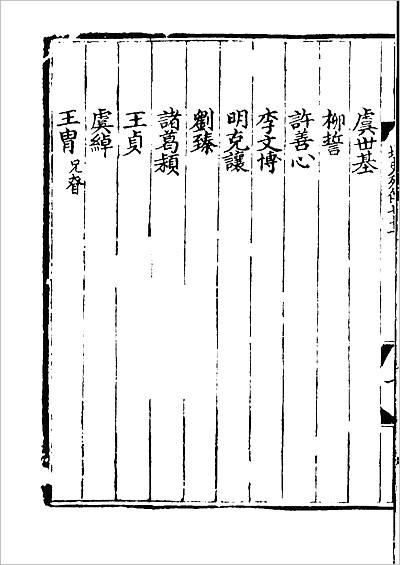 虞世基
柳䛒
許善心
李文博
明克讓
劉臻
諸葛頴
王貞
虞綽
王胄 兄眘